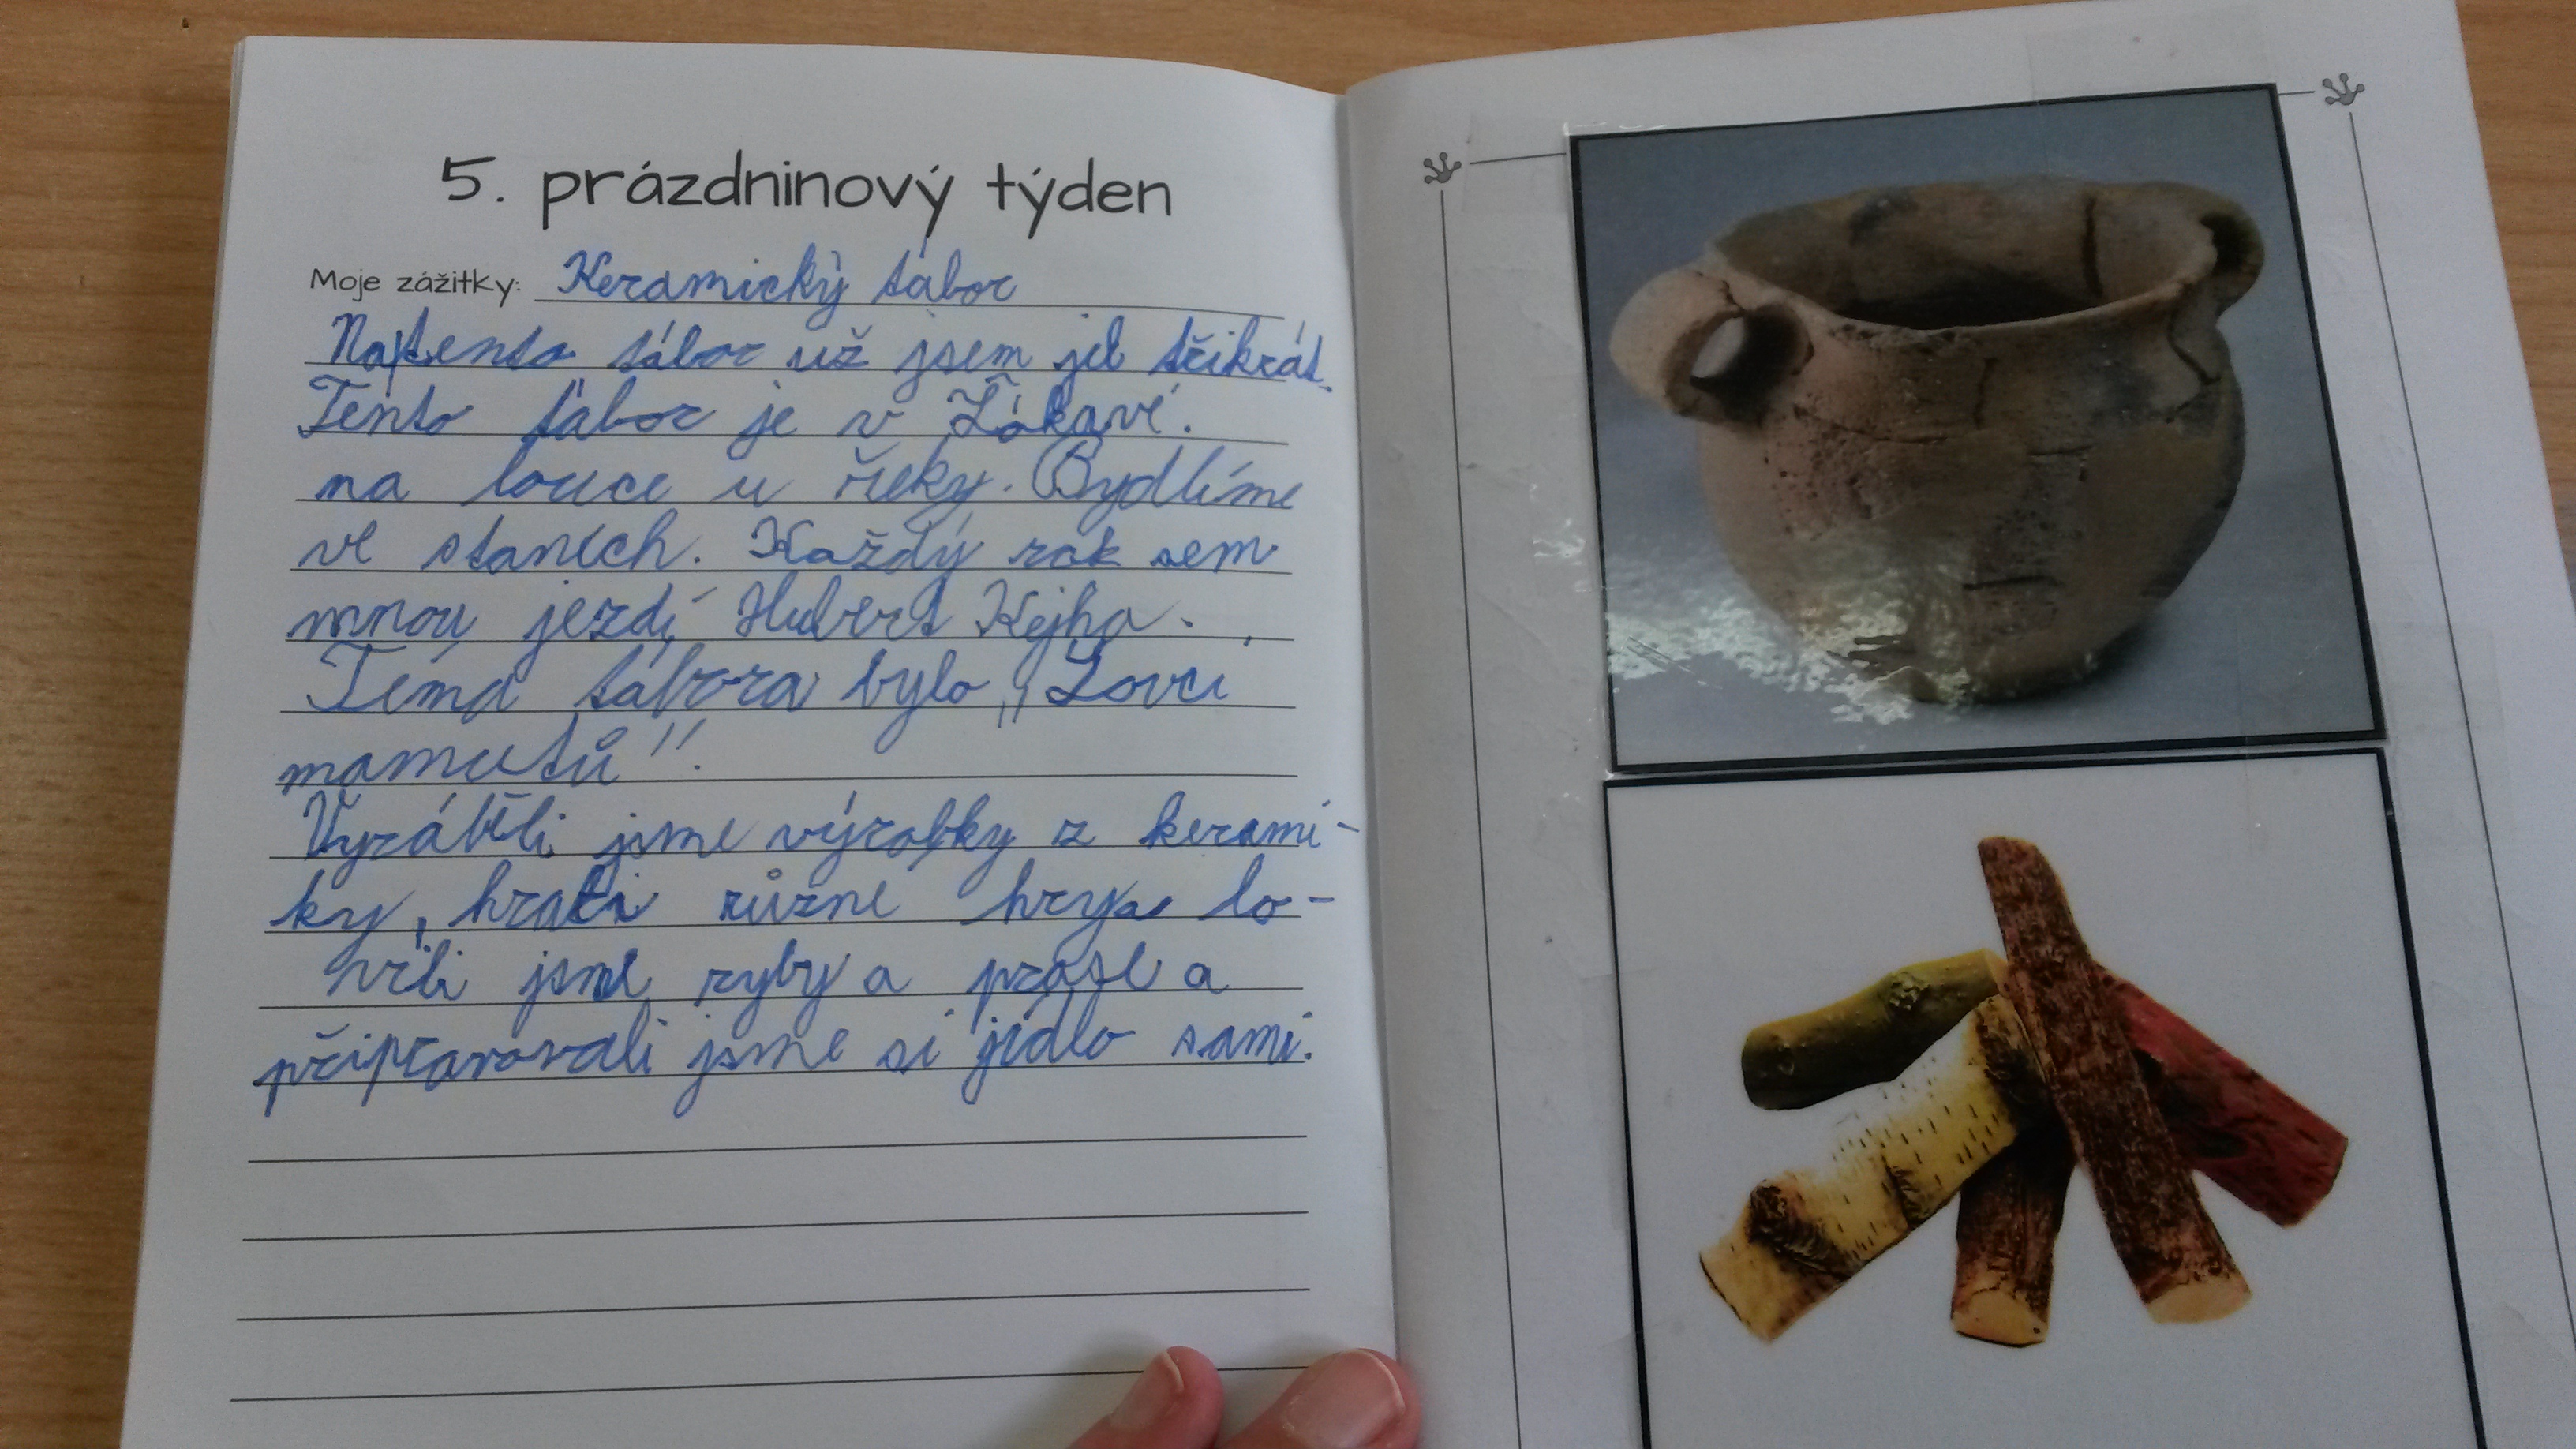 5. prázdninový týden
Moje zážitky: Keramický tábor
Na tento tábor už jsem jel třikrát.
Tento tábor je v Žákavé.
na louce u řeky. Bydlíme
ve stanech. Každý rok sem
mnou jezdí Hubert Kejha.
Téma tábora bylo „Lovci
mamutů".
Vyráběli jsme výrobky z kerami-
ky, hráli různé hry a lo-
vili jsme ryby a prase a
připravovali jsme si jídlo sami.